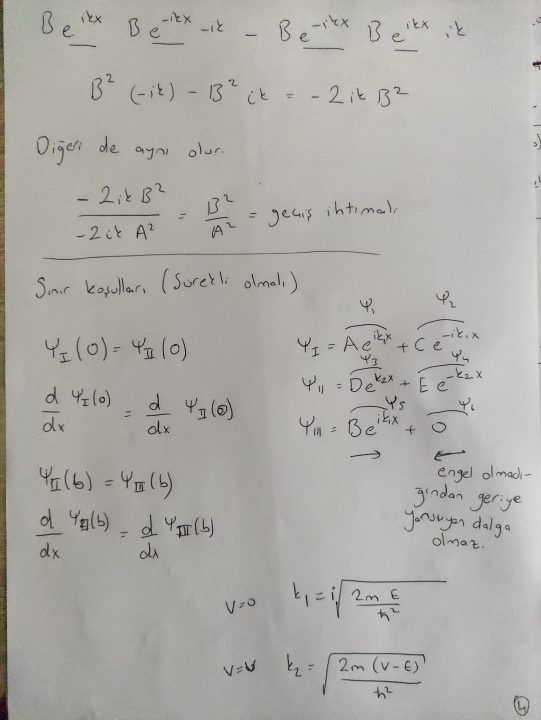 B e^{ikx} B e^{-ikx} -ik - B e^{-ikx} B e^{ikx} ik
B² (-ik) - B² ik = -2ik B²
Diğeri de aynı olur.
-2ik B² / -2ik A² = B² / A² = geçiş ihtimali
Sınır koşulları (Sürekli olmalı)
Ψ_I(0) = Ψ_II(0)
d/dx Ψ_I(0) = d/dx Ψ_II(0)
Ψ_II(b) = Ψ_III(b)
d/dx Ψ_II(b) = d/dx Ψ_III(b)
Ψ₁ Ψ₂
Ψ_I = A e^{ik₁x} + C e^{-ik₁x}
Ψ₃ Ψ₄
Ψ_II = D e^{k₂x} + E e^{-k₂x}
Ψ₅ Ψ₆
Ψ_III = B e^{ik₁x} + 0
→ ←
engel olmadı-
ğından geriye
yansıyan dalga
olmaz.
V=0 k₁ = i√(2m E / ħ²)
V=V k₂ = √(2m (V-E) / ħ²)
4